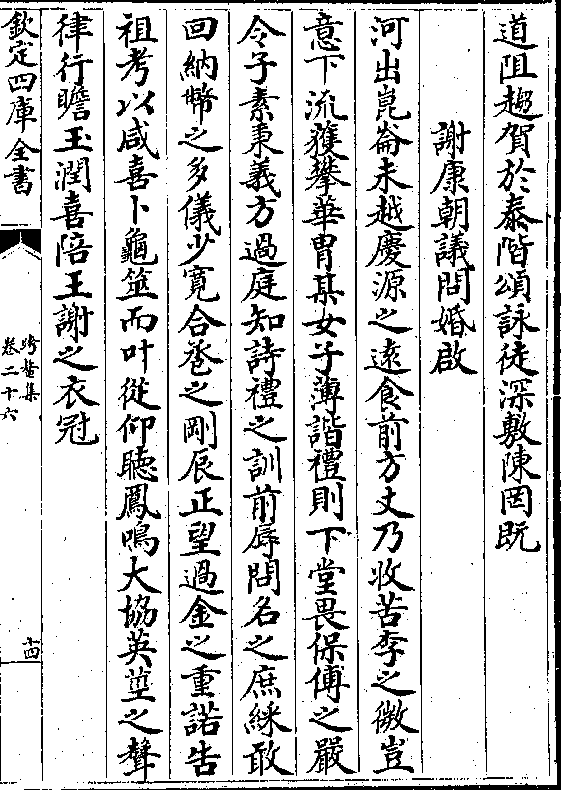 道阻趨賀於泰階頌詠徒深敷陳罔既
謝康朝議問婚啟
河出崑崙未越慶源之遠食前方丈乃收苦李之微豈
意下流獲攀華胄某女子薄諧禮則下堂畏保傅之嚴
令子素稟義方過庭知詩禮之訓前辱問名之庶綵敢
回納幣之多儀少寛合巹之剛辰正望過金之重諾告
祖考以咸喜卜龜筮而叶從仰聽鳳鳴大協英莖之聲
律行瞻玉潤喜陪王謝之衣冠
欽定四庫全書
跨鼇集
卷二十六
十四